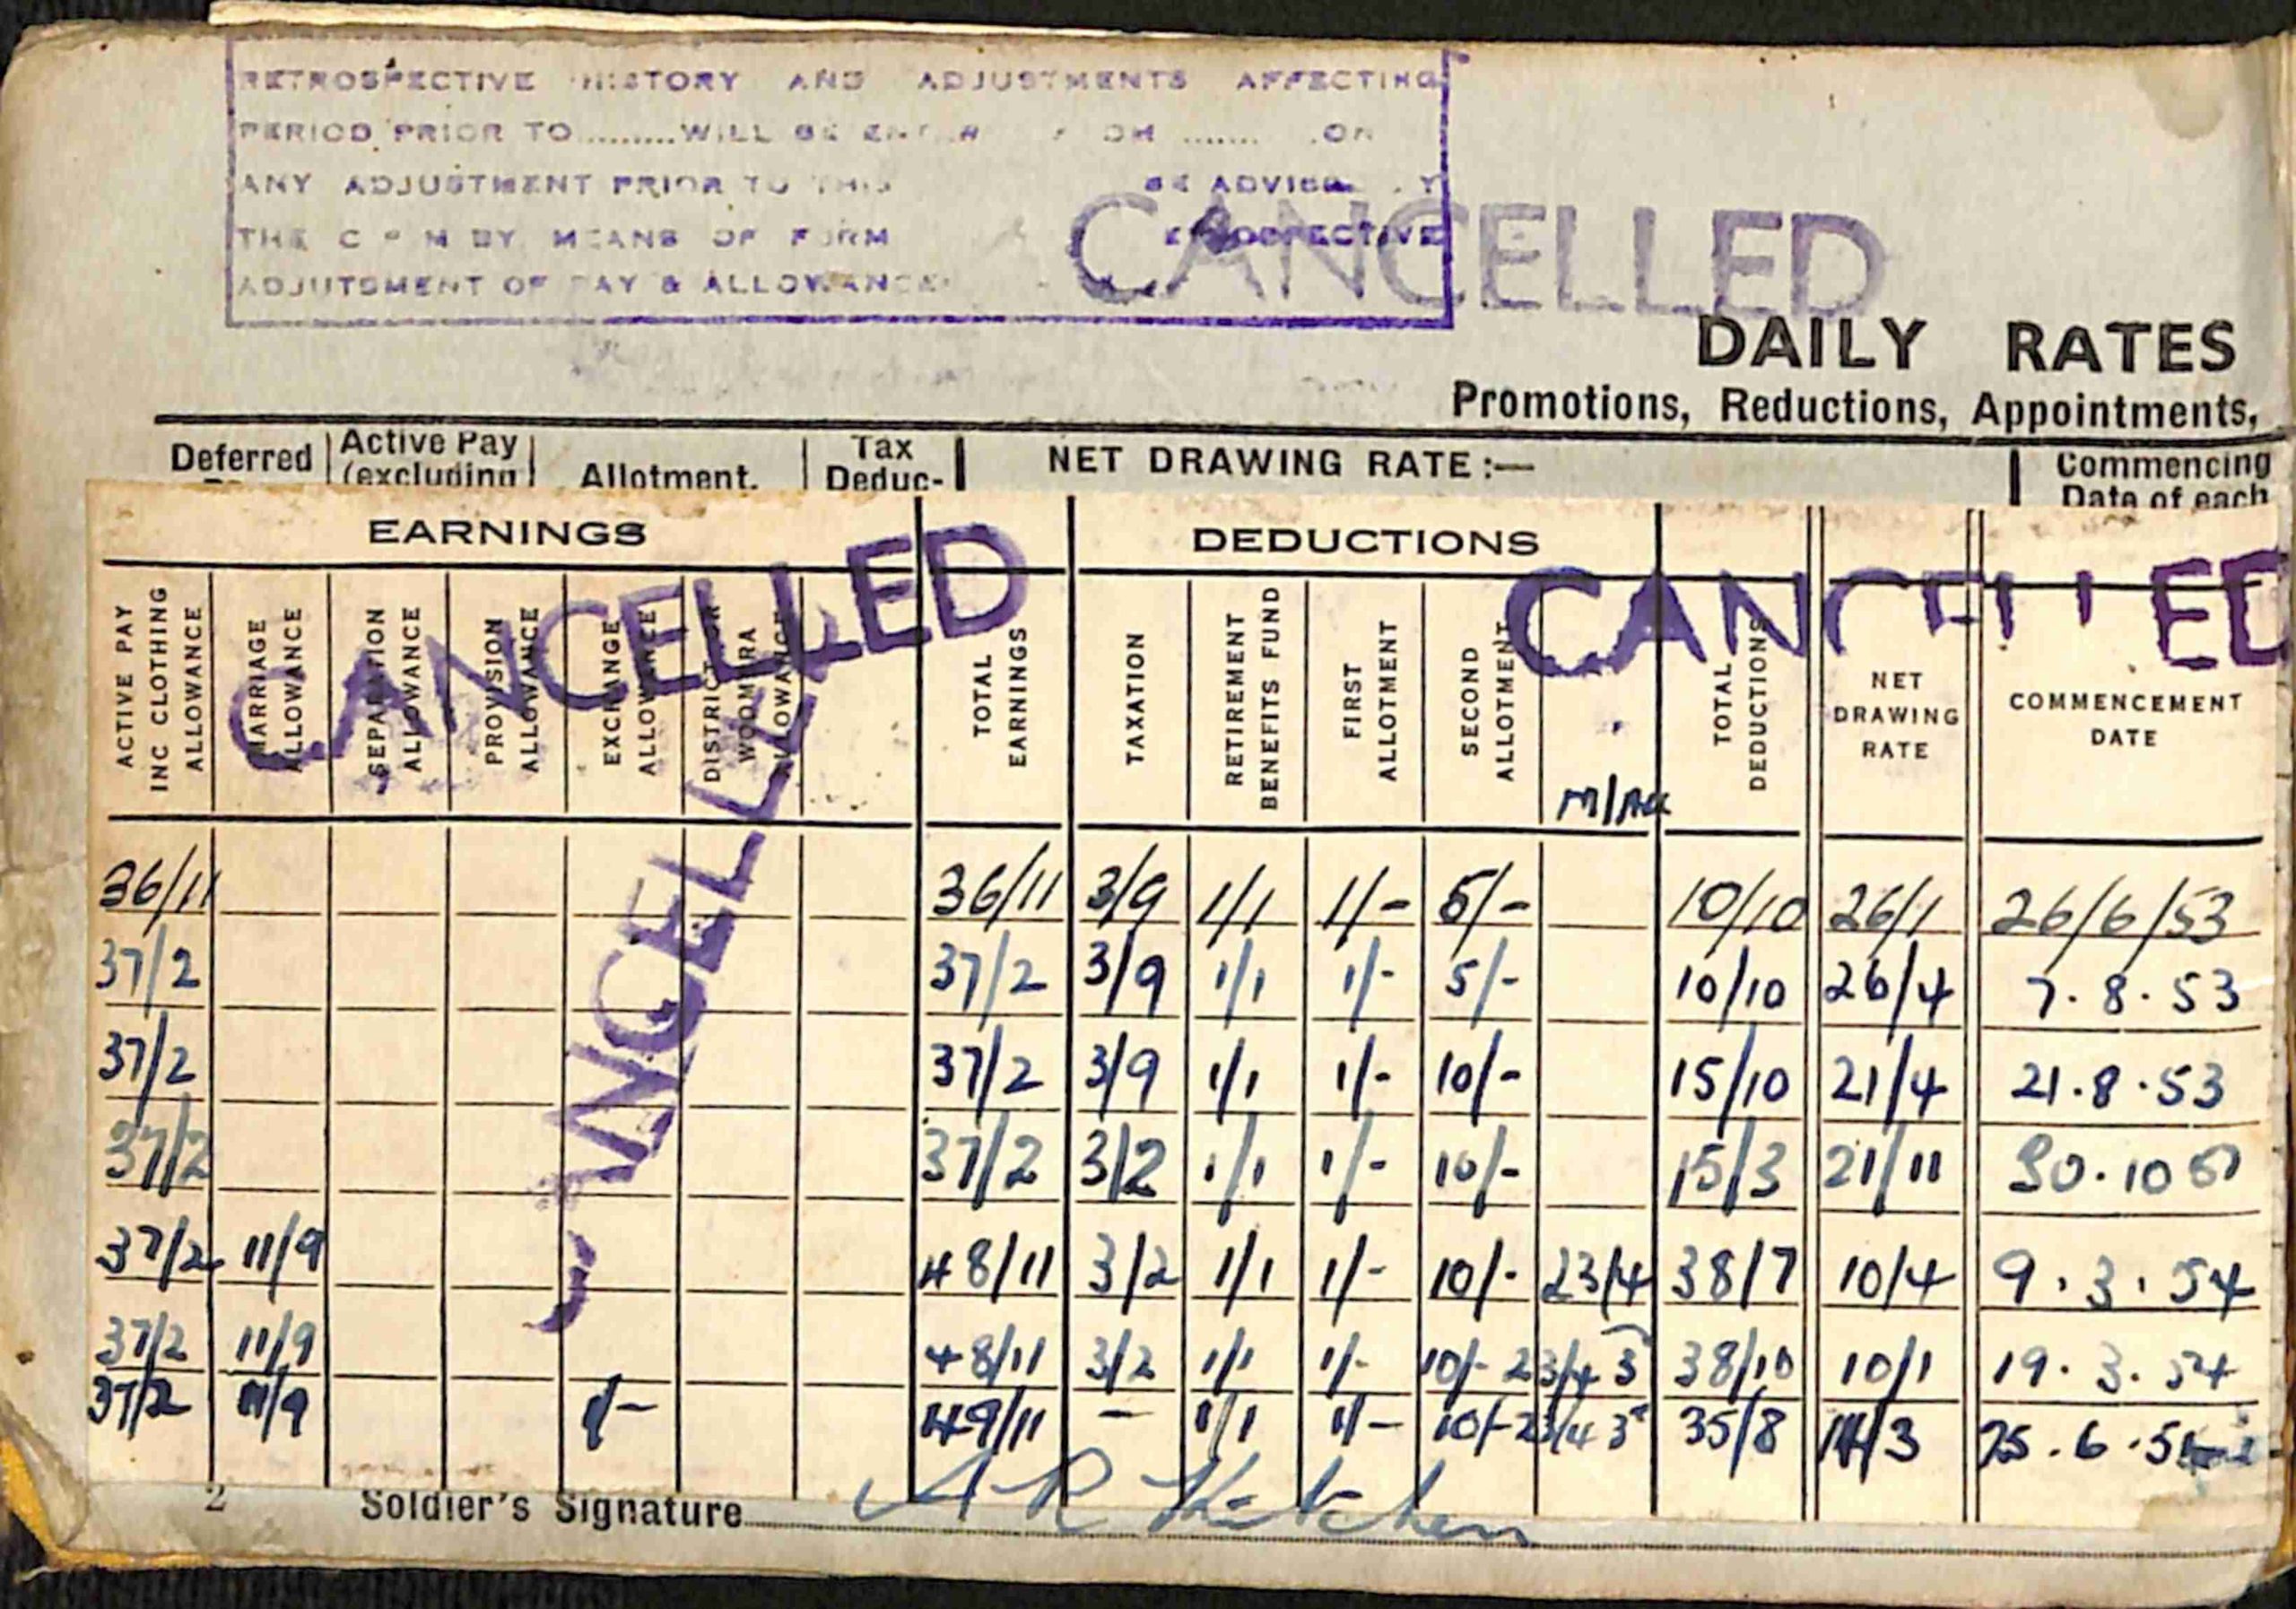 RETROSPECTIVE HISTORY AND ADJUSTMENTS AFFECTING
PERIOD PRIOR TO.........WILL BE ....... ON
ANY ADJUSTMENT PRIOR TO THIS BE ADVISED BY
THE C P M BY MEANS OF FORM RETROSPECTIVE
ADJUTSMENT OF PAY & ALLOWANCE
CANCELLED
DAILY RATES
Promotions, Reductions, Appointments,
Deferred Active Pay (excluding Allotment. Tax Deduc- NET DRAWING RATE:— Commencing Date of each
EARNINGS DEDUCTIONS
CANCELLED CANCELLED
CANCELLED
ACTIVE PAY INC CLOTHING ALLOWANCE
MARRIAGE ALLOWANCE
SEPARATION ALLOWANCE
PROVISION ALLOWANCE
EXCHANGE ALLOWANCE
DISTRICT OR WOOMERA ALLOWANCE
TOTAL EARNINGS
TAXATION
RETIREMENT BENEFITS FUND
FIRST ALLOTMENT
SECOND ALLOTMENT
TOTAL DEDUCTIONS
NET DRAWING RATE
COMMENCEMENT DATE
36/11 36/11 3/9 1/1 1/- 5/- 10/10 26/1 26/6/53
37/2 37/2 3/9 1/1 1/- 5/- 10/10 26/4 7.8.53
37/2 37/2 3/9 1/1 1/- 10/- 15/10 21/4 21.8.53
37/2 37/2 3/2 1/1 1/- 10/- 15/3 21/11 30.10
37/2 11/9 48/11 3/2 1/1 1/- 10/- 23/4 38/7 10/4 9.3.54
37/2 11/9 48/11 3/2 1/1 1/- 10/- 23/4 3 38/10 10/1 19.3.54
37/2 11/9 1/- 49/11 - 1/1 1/- 10/- 23/4 3 35/8 14/3 25.6.54
2 Soldier's Signature A R Ketchen